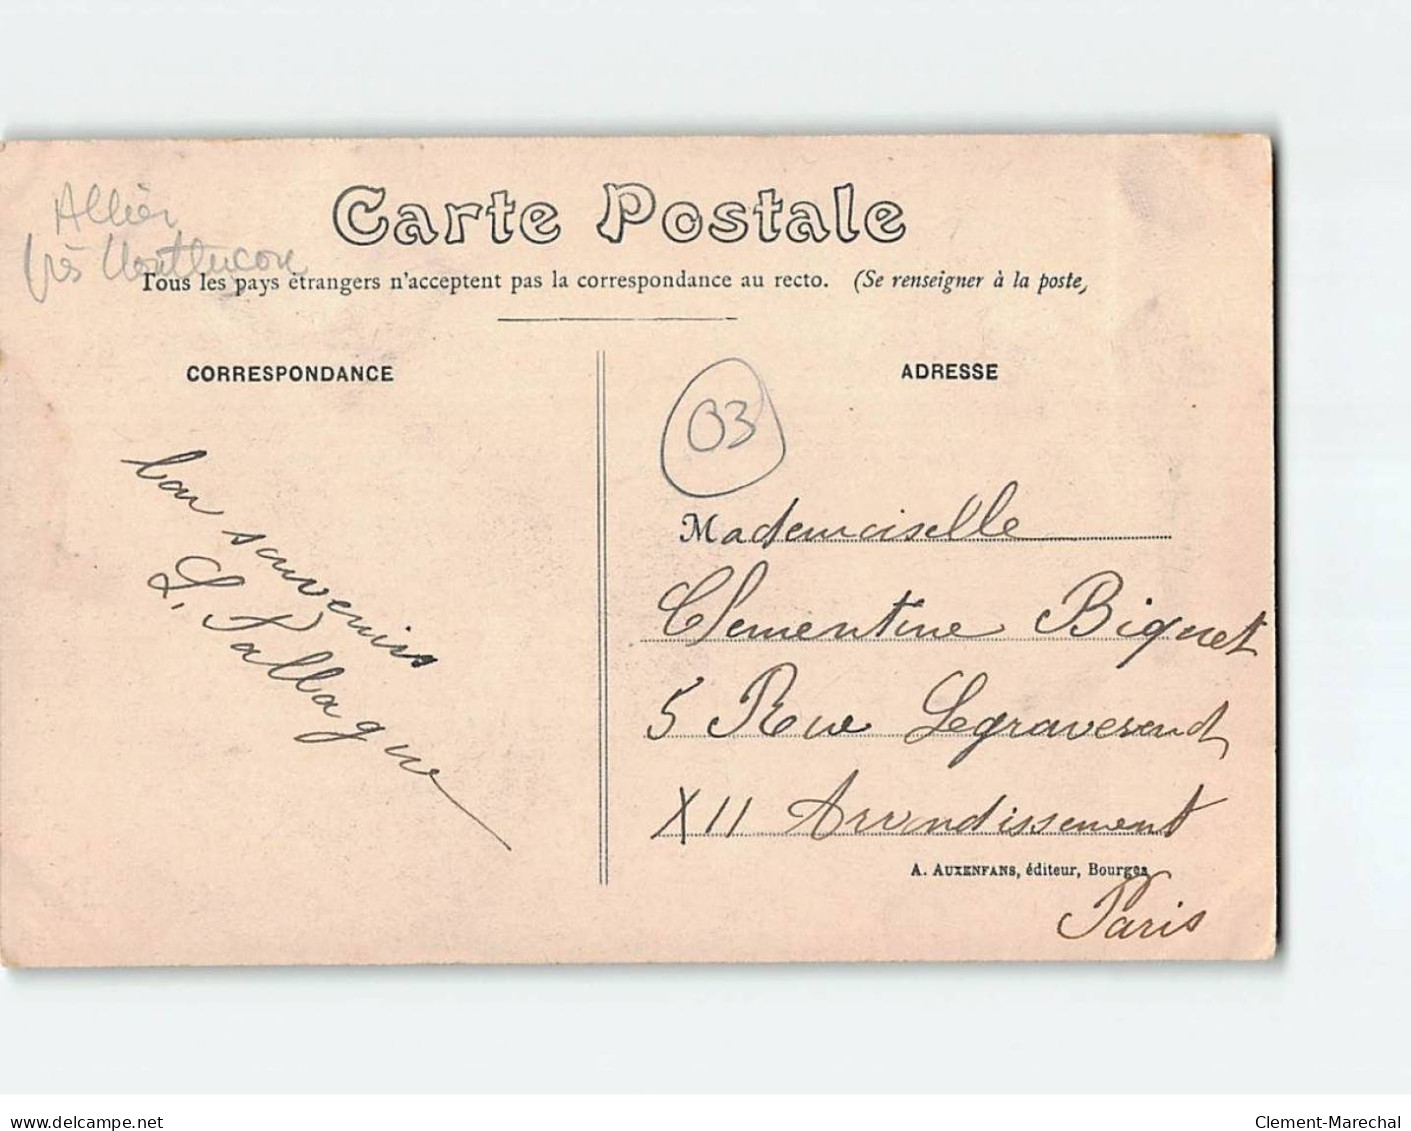 Allier
près Montluçon
Carte Postale
Tous les pays étrangers n'acceptent pas la correspondance au recto. (Se renseigner à la poste)
CORRESPONDANCE
ADRESSE
03
bon souvenirs
L. Pallague
Mademoiselle
Clementine Biguet
5 Rue Legraverend
XII Arrondissement
A. AUXENFANS, éditeur, Bourges
Paris
delcampe.net
Clement-Marechal